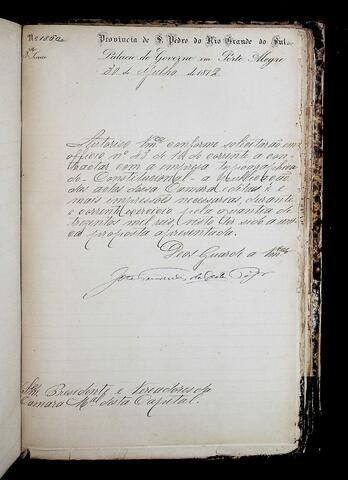 Nº 1850
Provincia de S. Pedro do Rio Grande do Sul.
Palacio do Governo em Porto Alegre
30 de Julho de 1872
Autoriso Vmces conforme solicitarão em
officio nº 43 de 18 do corrente a con-
tractar com a empresa typographica
do Constitucional a publicação
das actas dessa Camara, editaes e
mais impressões necessarias, durante
o corrente exercicio pela quantia de
trezentos mil reis, visto ter sido a
proposta apresentada.
Deos Guarde a Vmces
José Fernandes da Costa
Srs. Presidente e Vereadores da
Camara Mal desta Capital.